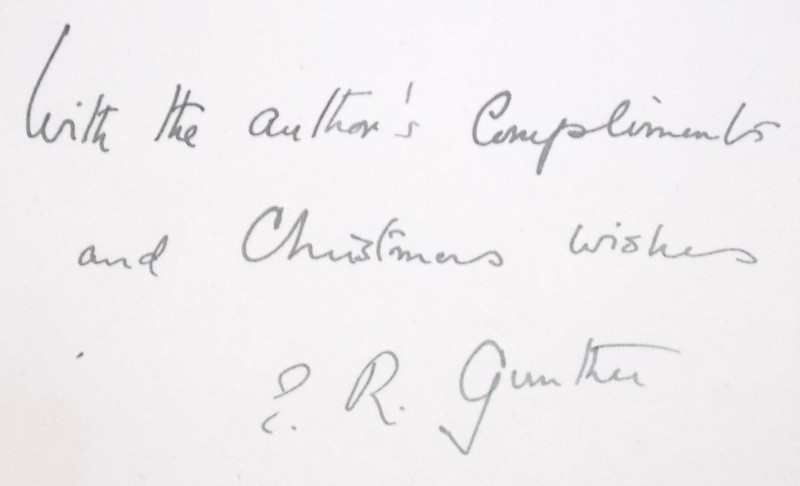 With the author's Compliments
and Christmas wishes
E. R. Gunther